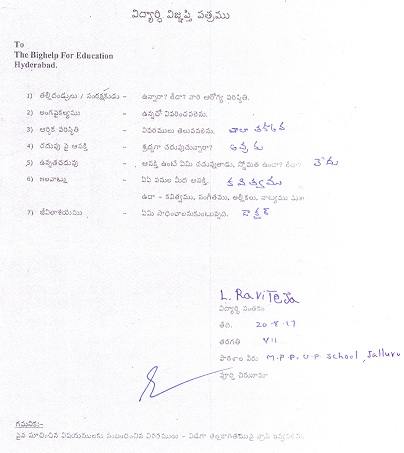 విద్యార్థి విజ్ఞప్తి పత్రము
To
The Bighelp For Education
Hyderabad.
1) తల్లిదండ్రులు / సంరక్షకుడు - ఉన్నారా? లేదా? వారి ఆరోగ్య పరిస్థితి.
2) అంగవైకల్యము - ఉన్నచో వివరించవలెను.
3) ఆర్థిక పరిస్థితి - వివరములు తెలుపవలెను. చాలా
4) చదువు పై ఆసక్తి - శ్రద్ధగా చదువుచున్నారా? అవును
5) ఉన్నతచదువు - ఆసక్తి ఉంటే ఏమి చదువుతాడు, స్తోమత ఉందా? లేదా?
6) అలవాట్లు - ఏఏ పనుల మీద ఆసక్తి. కవిత్వము
ఉదా - కవిత్వము, సంగీతము, అల్లికలు, నాట్యము
7) జీవితాశయము - ఏమి సాధించాలనుకుంటున్నది. డాక్టర్
L. RaviTeja
విద్యార్థి సంతకం
తేది. 20-8-17
తరగతి VII
పాఠశాల పేరు M.P.P.U.P School, Jalluru
పూర్తి చిరునామా
గమనిక:-
పైన సూచించిన విషయములకు సంబంధించిన వివరములు - విడిగా తెల్లకాగితమువై వ్రాసి ఇవ్వవలెను.